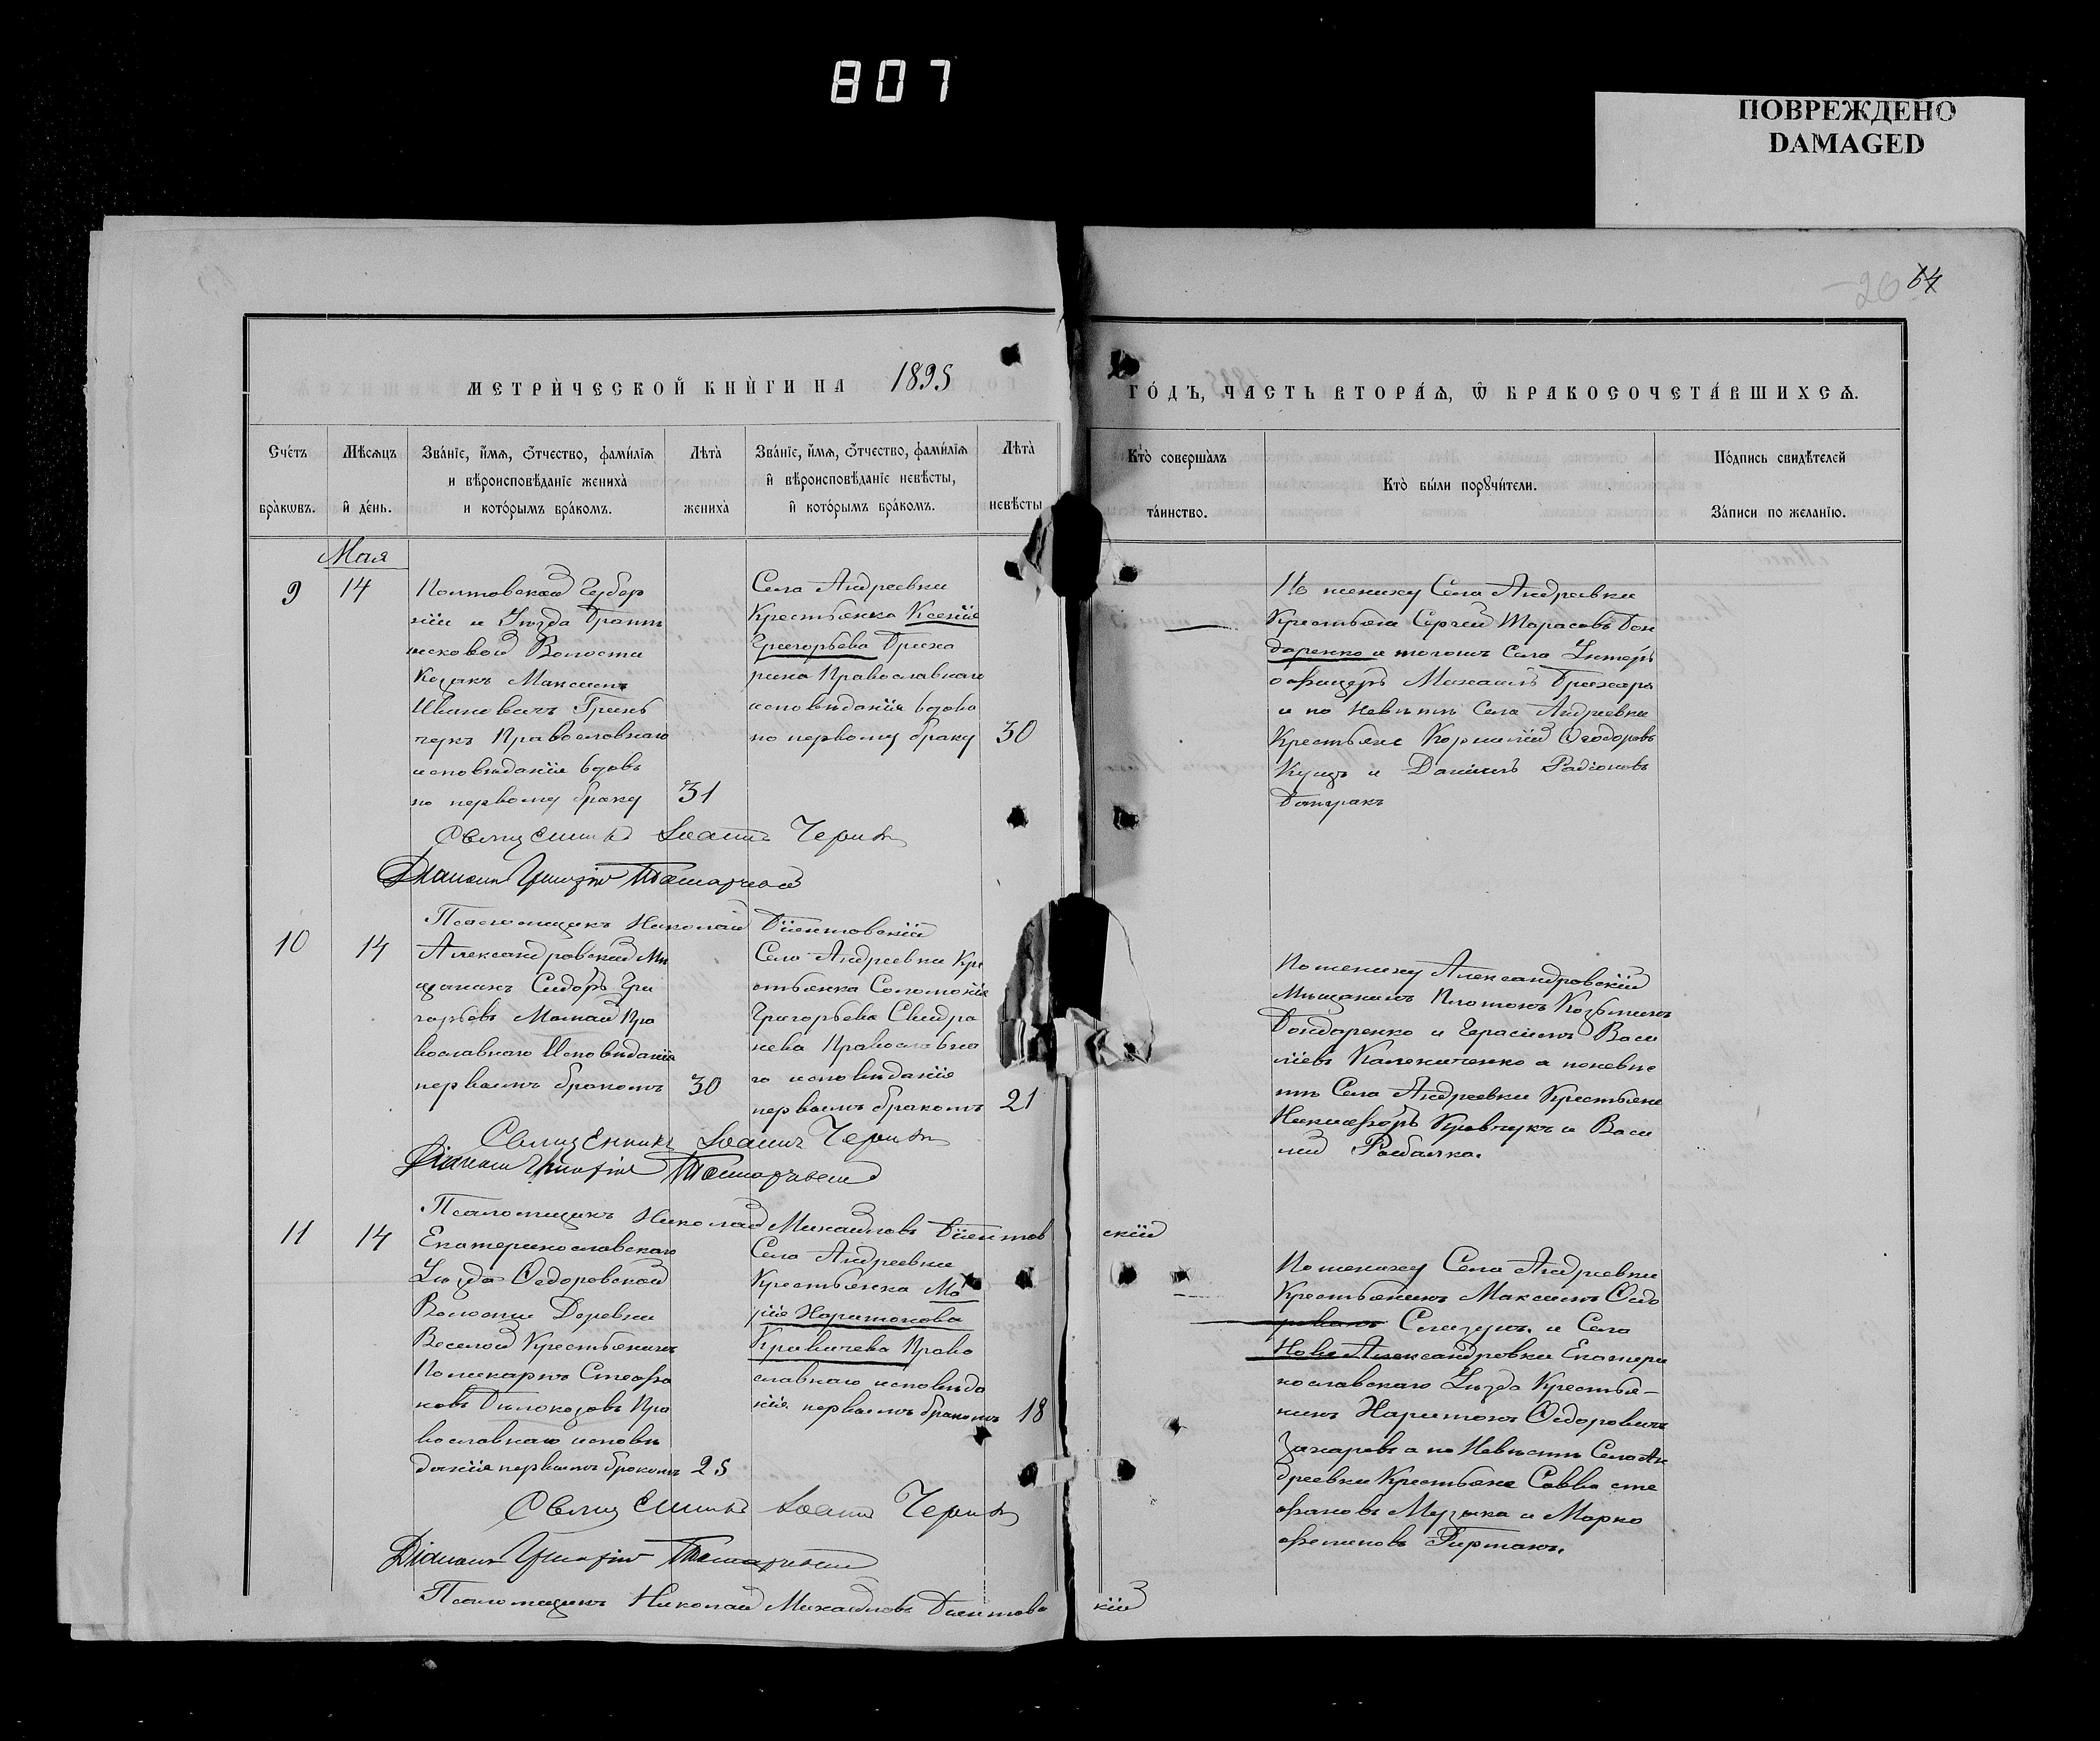 807
ПОВРЕЖДЕНО
DAMAGED
26 64
МЕТРИ́ЧЕСКОЙ КНИ́ГИ НА 1895
ГО́ДЪ, ЧАСТЬ ВТОРА́Ѧ, Ѽ БРАКОСОЧЕТА́ВШИХСѦ.
Сче́тъ бра́кѡвъ.
Мѣсѧцъ й де́нь.
Зва́нїе, и҆́мѧ, ѻ҆́тчество, фами́лїѧ
и вѣроисповѣ́данїе жениха̀
и кото́рымъ бра́комъ.
Лѣта̀ жениха̀
Зва́нїе, и҆́мѧ, ѻ҆́тчество, фами́лїѧ
й вѣроисповѣ́данїе невѣ́сты,
й кото́рымъ бра́комъ.
Лѣта̀ невѣ́сты
Кто̀ соверша́лъ та́инство.
Кто̀ бы́ли порꙋчи́тели.
По́дпись свидѣ́телей
За́писи по жела́нїю.
Мая
9 14
Полтовской Губер
ніи и Уѣзда
Волости
Козакъ Максимъ
Ивановичъ Гринь
чукъ Православнаго
исповѣданія вдовъ
по первому браку 31
Села Андреевки
Крестьянка Ксенія
Григорьева Приха
Православнаго
исповѣданія вдова
по первому браку 30
По жениху Села Андреевки
Крестьяне Сергей Тарасовъ Бон
даренко и тогожъ Села Унтеръ
офицеръ Михаилъ
и по невѣстѣ Села Андреевки
Крестьяне Корнилій Ѳеодоровъ
Куцъ и Даніилъ Радіоновъ
Священникъ Іоаннъ
Діаконъ
Псаломщикъ Николай
10 14
Александровский Мѣ
щанинъ Сидоръ Гри
горьевъ Мамай Пра
вославнаго Исповѣданія
первымъ бракомъ 30
Села Андреевки Кре
стьянка Соломонія
Григорьева Свидра
нева Православна
го исповѣданія
первымъ бракомъ 21
По жениху Александровскій
Мѣщанинъ Платонъ Козьминъ
Бондаренко и Герасимъ Васи
ліевъ Калениченко а по невѣс
тѣ Села Андреевки Крестьяне
Никифоръ Кравчукъ и Васи
лій Рыбалка.
Священникъ Іоаннъ
Діаконъ
Псаломщикъ Николай Михаиловъ
скій
11 14
Екатеринославскаго
Уѣзда Ѳедоровской
Волости Деревни
Веселой Крестьянинъ
Поликарпъ Стефа
новъ Бѣлокозовъ Пра
вославнаго исповѣ
данія первымъ бракомъ 25
Села Андреевки
Крестьянка Ма
рія Харитонова
Кравичева Право
славнаго исповѣда
нія первымъ бракомъ 18
По жениху Села Андреевки
Крестьянинъ Максимъ Ѳедо
ровичъ и Села
Ново Александровки Екатери
нославскаго Уѣзда Крестья-
нинъ Харитонъ Ѳедоровичъ
Захаровъ а по Невѣстѣ Села Ан
дреевки Крестьяне Савва Сте
фановъ Музыка и Марко
Гиртакъ.
Священникъ Іоаннъ
Діаконъ
Псаломщикъ Николай Михаиловъ
кій